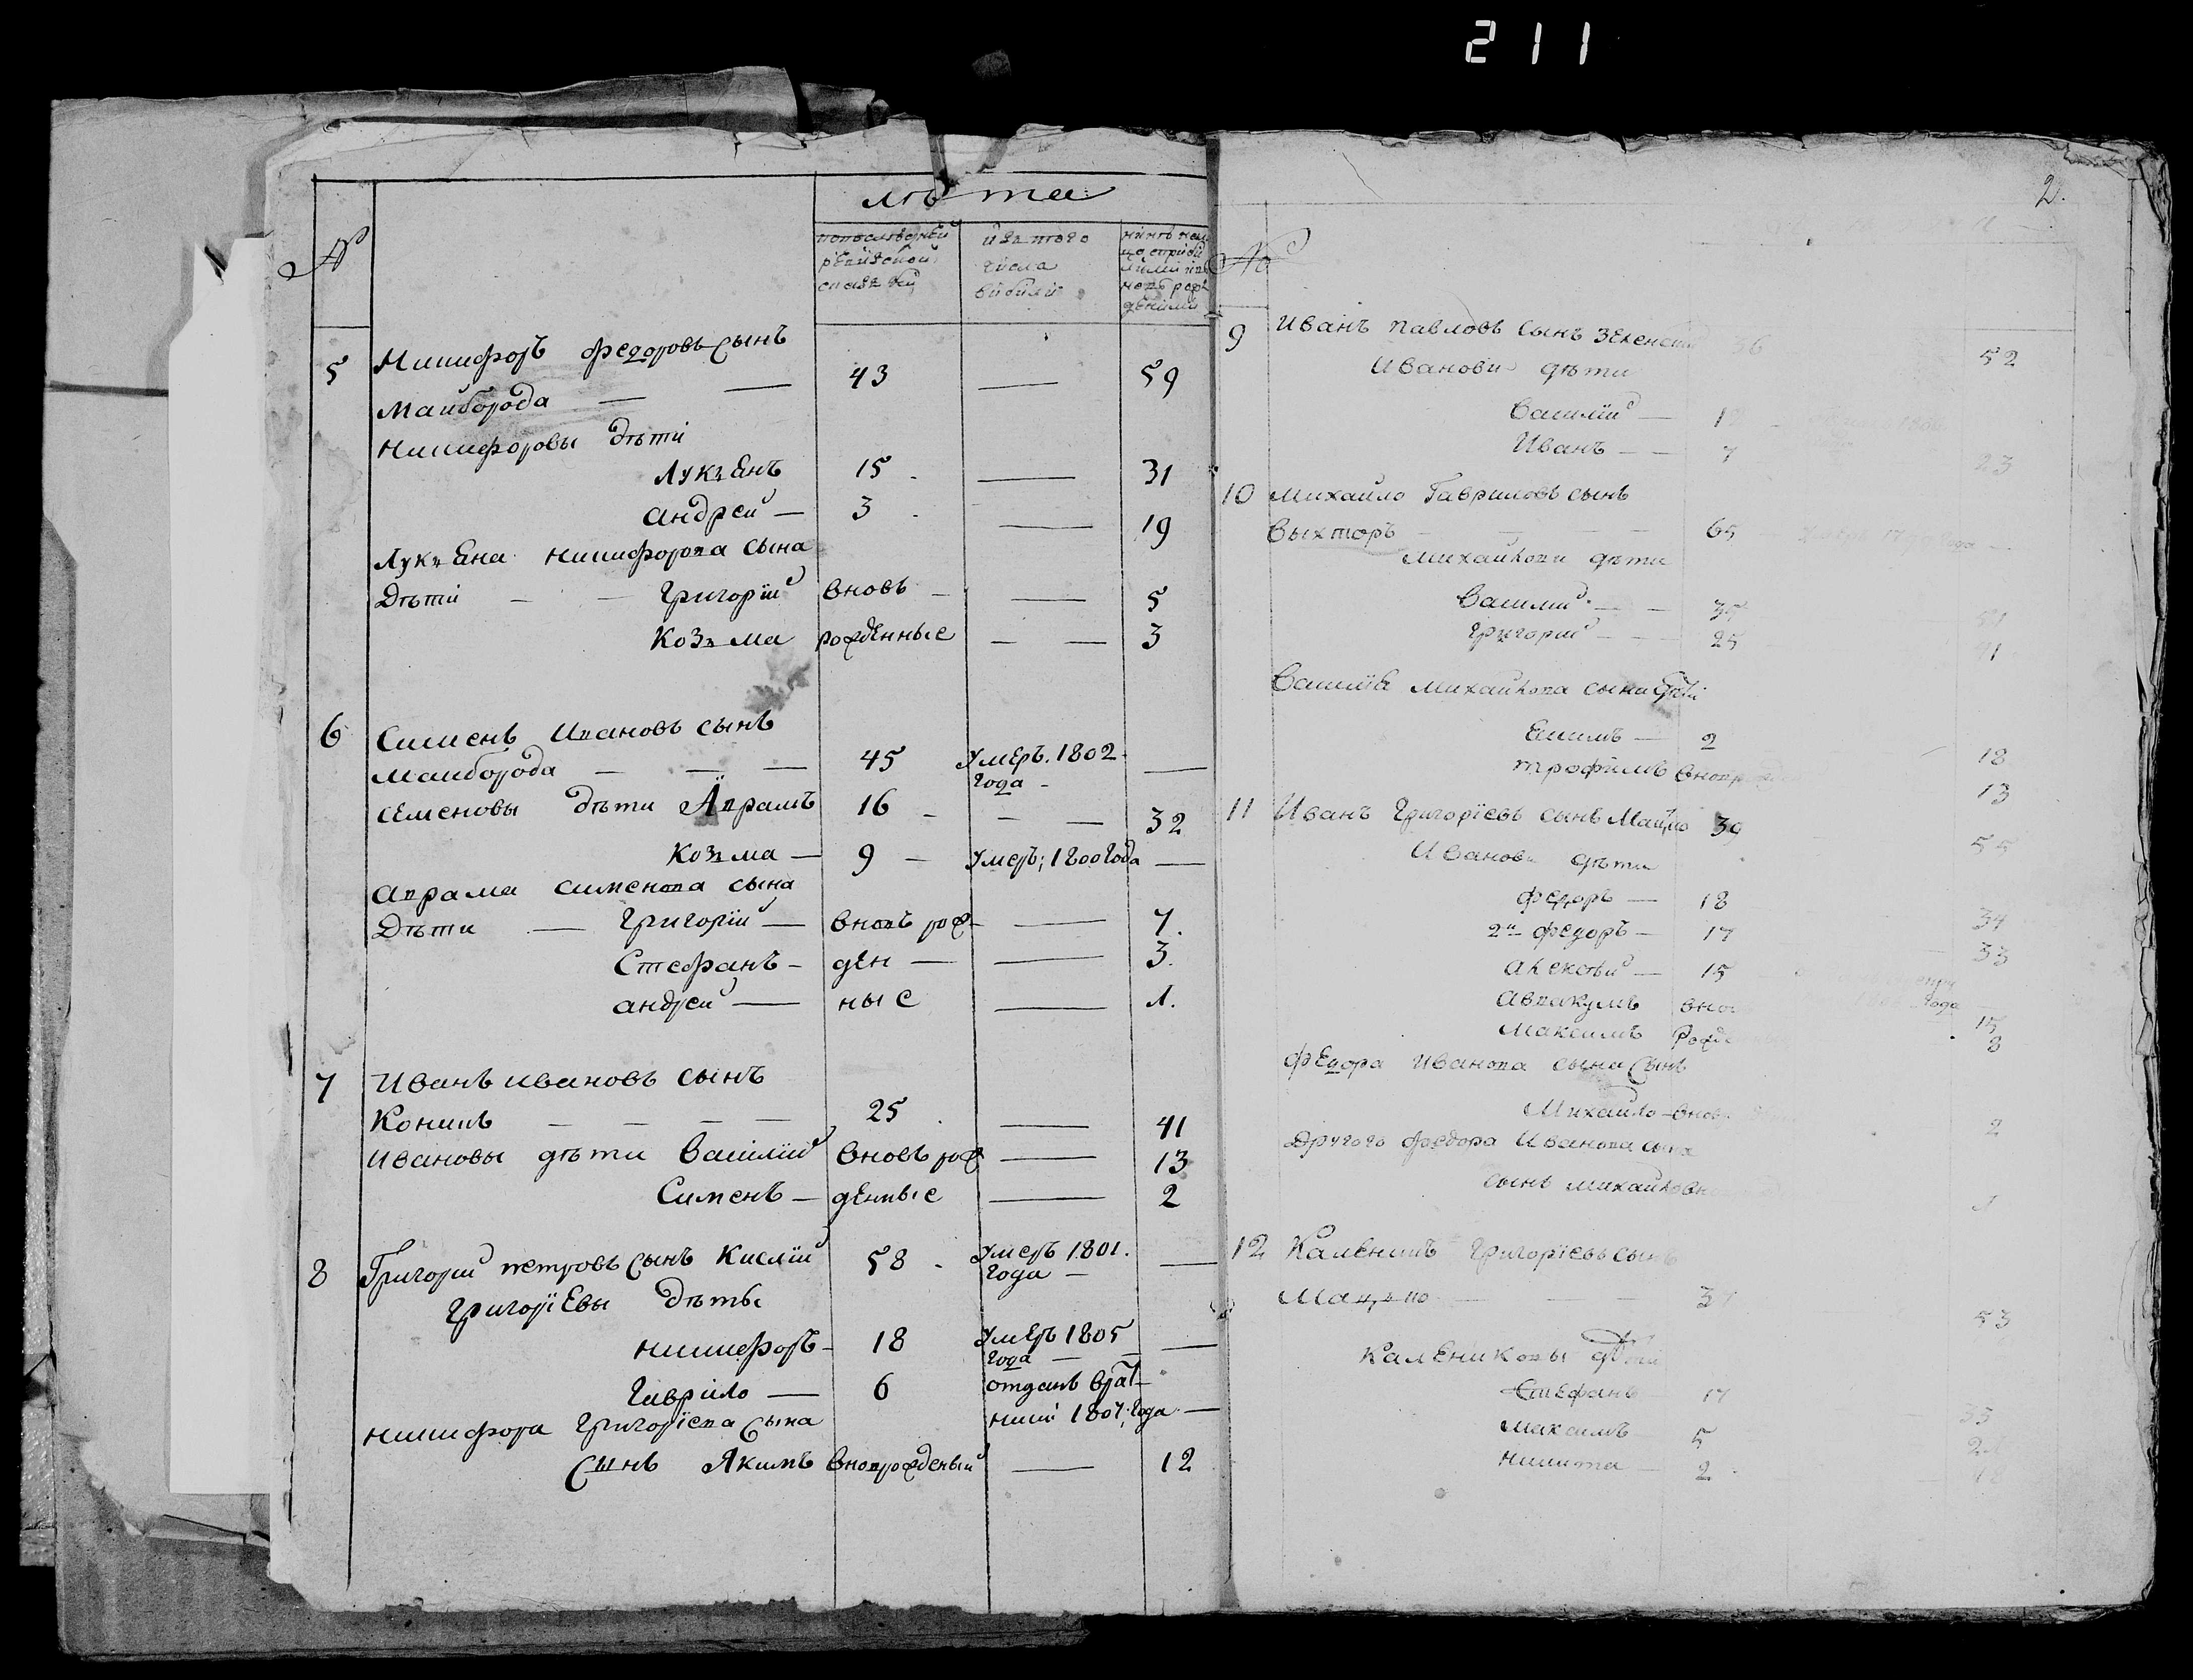 211
лѣта
№
попоследней ревизской сказки
изъ того числа выбыли
5 Никифоръ федоровъ сынъ
Майборода — — 43 — 59
Никифоровы дѣти
Лукъянъ 15 — 31
андрей — 3 — 19
Лукъяна никифорова сына
Дѣти — — Григорій вновь — — 5
Козъма рожденные — — 3
6 Сименъ Ивановъ сынъ
Майборода — — — 45 Умеръ 1802 года — —
Семеновы дѣти Аврамъ 16 — — — 32
Козъма — 9 — Умеръ 1800 года —
аврама сименова сына
Дѣти — Григорій — вновь рож — 7.
Стефанъ — ден — — 3.
андрей — ные — 1.
7 Иванъ ивановъ сынъ
Коникъ — — — — 25 — 41
Ивановы дѣти Василій вновь рож — 13
Сименъ — денные — 2
8 Григорій петровъ сынъ Кислій 58 — Умеръ 1801. года — —
Григоріевы дѣты
никифоръ — 18 Умеръ 1805 года — —
Гаврило — 6 отданъ врат-
ники 1807, года —
никифора Григоріева сына
сынъ Якимъ вноврожденый — 12
2.
№
9 Иванъ павловъ сынъ 36
Иванови дѣти 52
Василій —
Иванъ — — 7 23
10 михайло Гавриловъ сынъ
Выхторъ — 65
михайлови дѣти
Василій — — 35
Григорій — — 25
Василія михайлова сына дѣти
Екимъ — 2 18
трофимъ 13
11 Иванъ Григоріевъ сынъ Мацко 39
Иванови дѣти 55
федоръ — 18
2й федоръ — 17 34
алексѣй — 15 33
Авакумъ вно года
Максимъ рожде 15
федора Иванова сына сынъ 8
Михайло — вновь
Другого федора Иванова сына 2
сынъ михайло
1
12 Каленикъ Григоріевъ сынъ
Мацко — — —
53
Калениковы дѣти
Стефанъ 17
максимъ 5
никита — 2